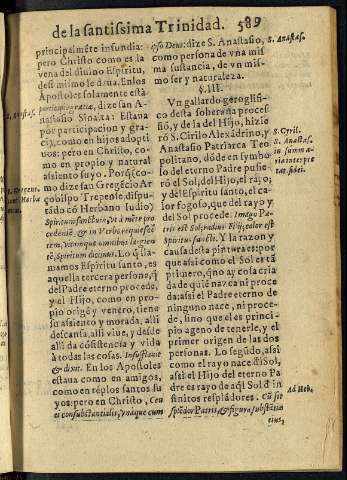 de la santissima Trinidad. 589
principalmēte infundia:
pero Christo como es la
vena del diuino Espiritu,
de si mismo le daua. En los
Apostoles solamente está
participatione gratiæ, dize san A-
nastasio Sinaita: Estaua
por participacion y gra-
cia, como en hijos adopti
uos: pero en Christo, co-
mo en propio y natural
assiento suyo. Porq̃ (co-
mo dize san Gregẽcio Ar
çobispo Trepense, dispu-
tádo cō Herbano Iudio)
Spiritum sanctum,
Spiritum diuinum. Lo q̃ lla-
mamos Espiritu santo, es
aquella tercera persona, q̃
del Padre eterno procede,
y el Hijo, como en pro-
pio origẽ y venero, tiene
su assiento y morada, alli
descansa, alli viue, y desde
alli da cōsistencia y vida
à todas las cosas. Insufflauit
& dixit. En los Apostoles
estaua como en amigos,
como en tēplos santos su
yos: pero en Christo, Ceu
ei consubstantialis, vnaque cum
S. Anastas.
S. Gregent.
cum Herba
ipso Deus: dize S. Anastasio,
como persona de vna mis
ma sustancia, de vn mis-
mo ser y naturaleza.
§. III.
Vn gallardo geroglifi-
co desta soberana proces
sió, y de la del Hijo, hizie
rō S. Cirilo Alexādrino, y
Anastasio Patriarca Teo-
politano, dōde en symbo
lo del eterno Padre pusie
rō el Sol, del Hijo, el rayo,
y del Espiritu santo, el ca-
lor fogoso, que del rayo y
del Sol procede. Imago Pa-
tris est Sol; radius Filij; calor est
Spiritus sancti. Y la razon y
causa desta pintura es: por
que assi como el Sol es tā
primero, q̃ no ay cosa cria
da de quiē nazca ni proce
da: assi el Padre eterno de
ninguno nace, ni proce-
de, sino que el es princi-
pio ageno de tenerle, y el
primer origen de las dos
personas. Lo segūdo, assi
como el rayo nace del Sol,
assi el Hijo del eterno Pa
dre es rayo de aq̃l Sol d̃ in
finitos respládores. Cū sit
splēdor Patris, & figura substātiæ
eius,
S. Anastas.
S. Cyril.
S. Anastas.
in summa
Ad Heb.